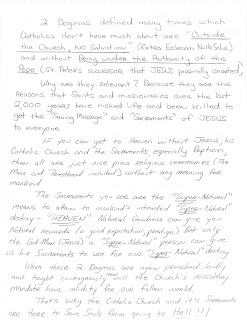 2 Dogmas defined many times which
Catholics don't have much about are "Outside
the Church, NO Salvation" (Extra Ecclesiam Nulla Salus)
and without Being under the Authority of the
Pope (St. Peters successor that JESUS personally created)
Why are they relevant? Because they are the
reasons that Saints and missionaries over the last
2,000 years have risked life and been killed to
get the "Saving Message" and "Sacraments" of JESUS
to everyone.
IF you can get to Heaven without Jesus, his
Catholic Church and the Sacraments, especially Baptism,
then all are just nice pious religious ceremonies (The
Mass and Priesthood included) without any meaning for
mankind.
The Sacraments you see are the "Supra-Natural"
means to allow to mankind's intended "Supra-Natural"
destiny - "HEAVEN". Natural Goodness can give you
Natural rewards (a good reputation, prestige) But only
the God-Man (Jesus) a "Supra-Natural" person can give
us his Sacraments to use for our "Supra-Natural" destiny
When these 2 Dogmas are again preached loudly
and taught courageously will the Church's missionary
mandate have validity for our fallen world.
That's why the Catholic Church and it's Sacraments
are there to Save Souls from going to Hell!!!